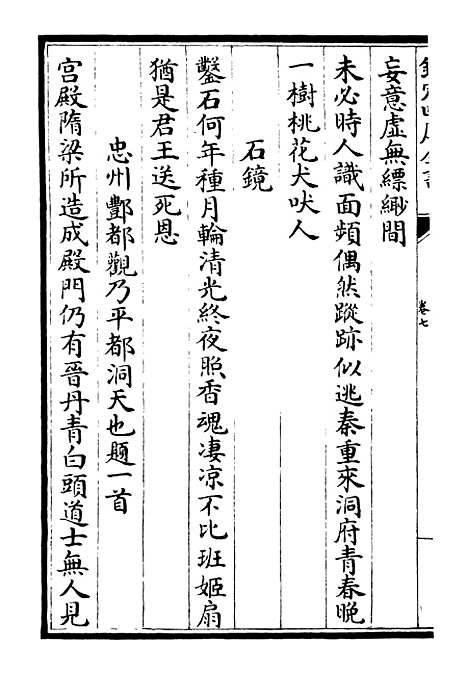 卷七
妄意虛無縹緲間
未必時人識面頻偶然蹤跡似逃秦重來洞府青春晚
一樹桃花犬吠人
石鏡
鑿石何年種月輪清光終夜照香魂凄凉不比班姬扇
猶是君王送死恩
忠州酆都觀乃平都洞天也題一首
宫殿隋梁所造成殿門仍有晉丹青白頭道士無人見